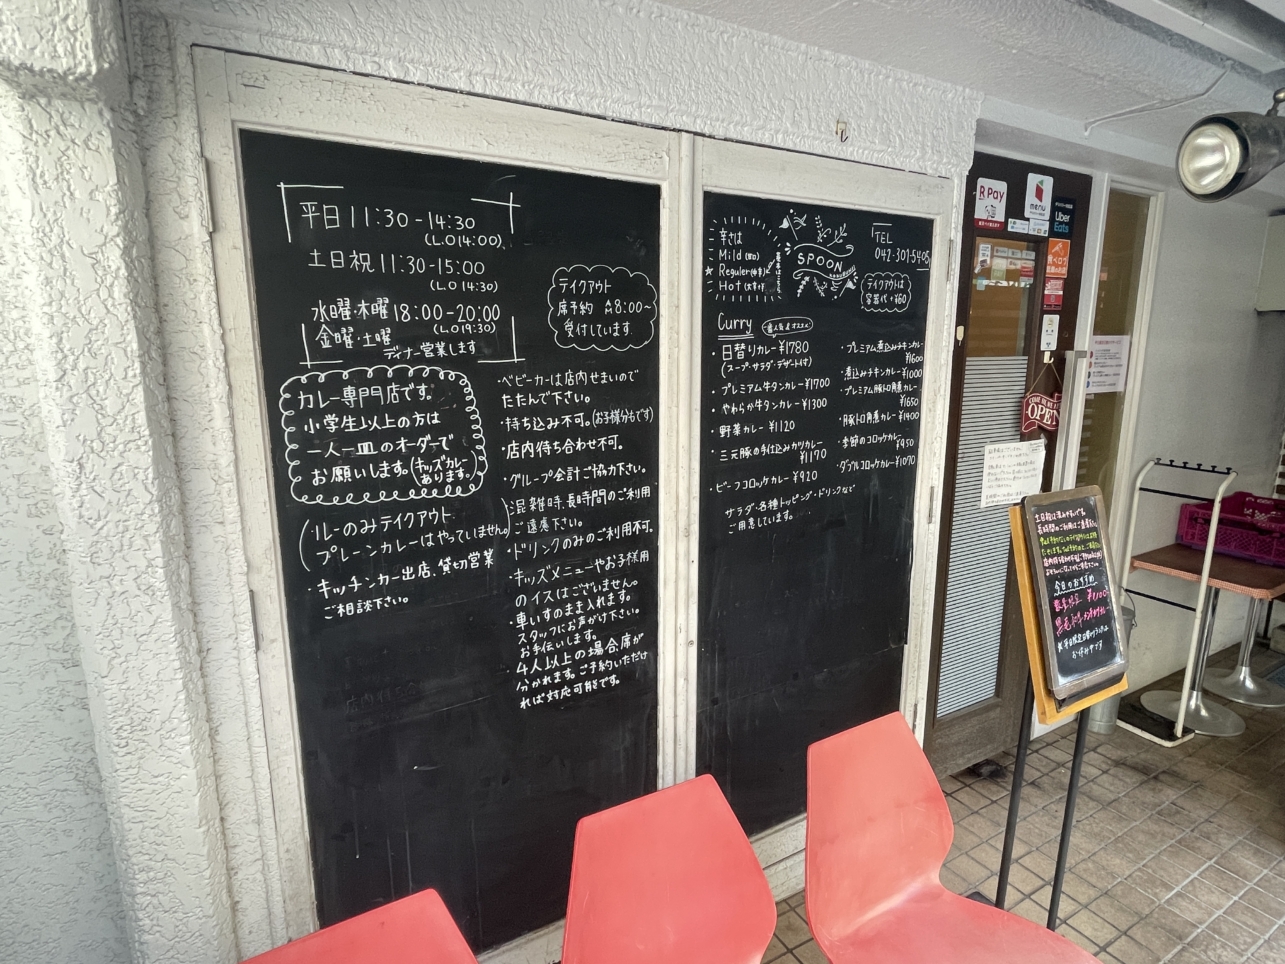 平日11:30-14:30
(L.O14:00)
土日祝11:30-15:00
(L.O14:30)
水曜・木曜18:00-20:00
金曜・土曜 (L.O19:30)
ディナー営業します
テイクアウト
席予約 A8:00〜
受付しています
カレー専門店です。
小学生以上の方は
一人一皿のオーダーで
お願いします。(キッズカレー
あります。)
(ルーのみテイクアウト
プレーンカレーはやっていません)
キッチンカー出店、貸切営業
ご相談下さい。
・ベビーカーは店内せまいので
たたんで下さい。
・持ち込み不可。(お子様分もです)
・店内待ち合わせ不可。
・グループ会計ご協力下さい。
・混雑時、長時間のご利用
ご遠慮下さい。
・ドリンクのみのご利用不可。
・キッズメニューやお子様用
のイスはございません。
・車いすのまま入れます。
スタッフにお声がけ下さい。
お手伝いします。
4人以上の場合席が
分かれます。ご予約いただけ
れば対応可能です。
辛さは
Mild
Reguler
Hot
SPOON
TEL
042-301-5405
テイクアウトは
容器代+¥60
Curry
・日替りカレー¥1780
(スープ・サラダ・デザート付)
・プレミアム牛タンカレー¥1700
・やわらか牛タンカレー¥1300
・野菜カレー¥1120
・三元豚の手仕込みカツカレー
¥1170
・ビーフコロッケカレー¥920
・プレミアム煮込みチキンカレー
¥1600
・煮込みチキンカレー¥1000
・プレミアム豚トロ角煮カレー
¥1650
・豚トロ角煮カレー¥1400
・季節のコロッケカレー
¥950
・ダブルコロッケカレー¥1070
サラダ・各種トッピング・ドリンクなど
ご用意しています。
R Pay
menu
Uber
Eats
食べログ
COME IN WE'RE
OPEN
今日のおすすめ